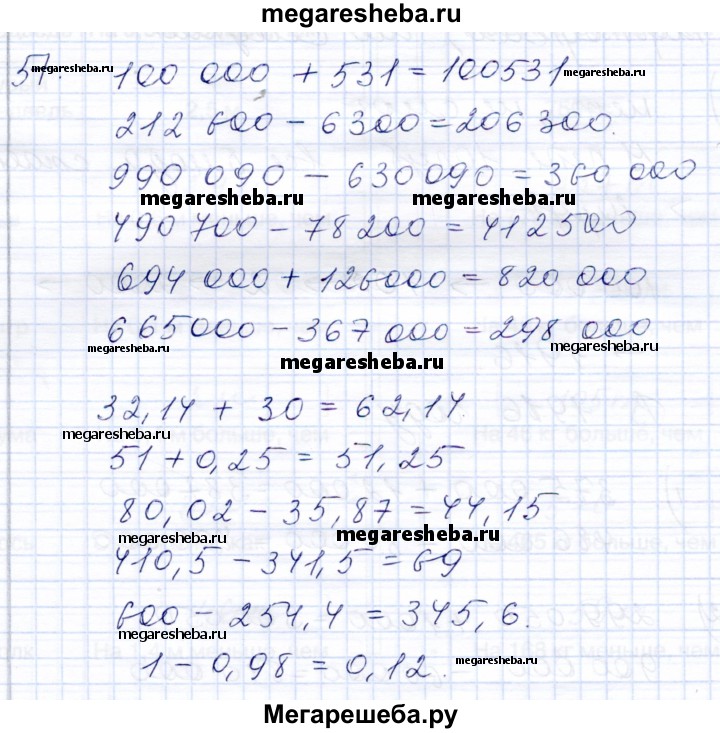 megaresheba.ru
57. megaresheba.ru 100 000 + 531 = 100531 megaresheba.ru
212 600 - 6300 = 206 300.
990 090 - 630090 = 360 000
megaresheba.ru megaresheba.ru
490 700 - 78200 = 412500
megaresheba.ru
694 000 + 126000 = 820 000
665000 - 367 000 = 298 000
megaresheba.ru megaresheba.ru megaresheba.ru
32,14 + 30 = 62,14.
megaresheba.ru
51 + 0,25 = 51,25
80,02 - 35,87 = 44,15
megaresheba.ru megaresheba.ru
410,5 - 341,5 = 69
600 - 254,4 = 345,6.
megaresheba.ru
1 - 0,98 = 0,12. megaresheba.ru
Мегарешеба.ру